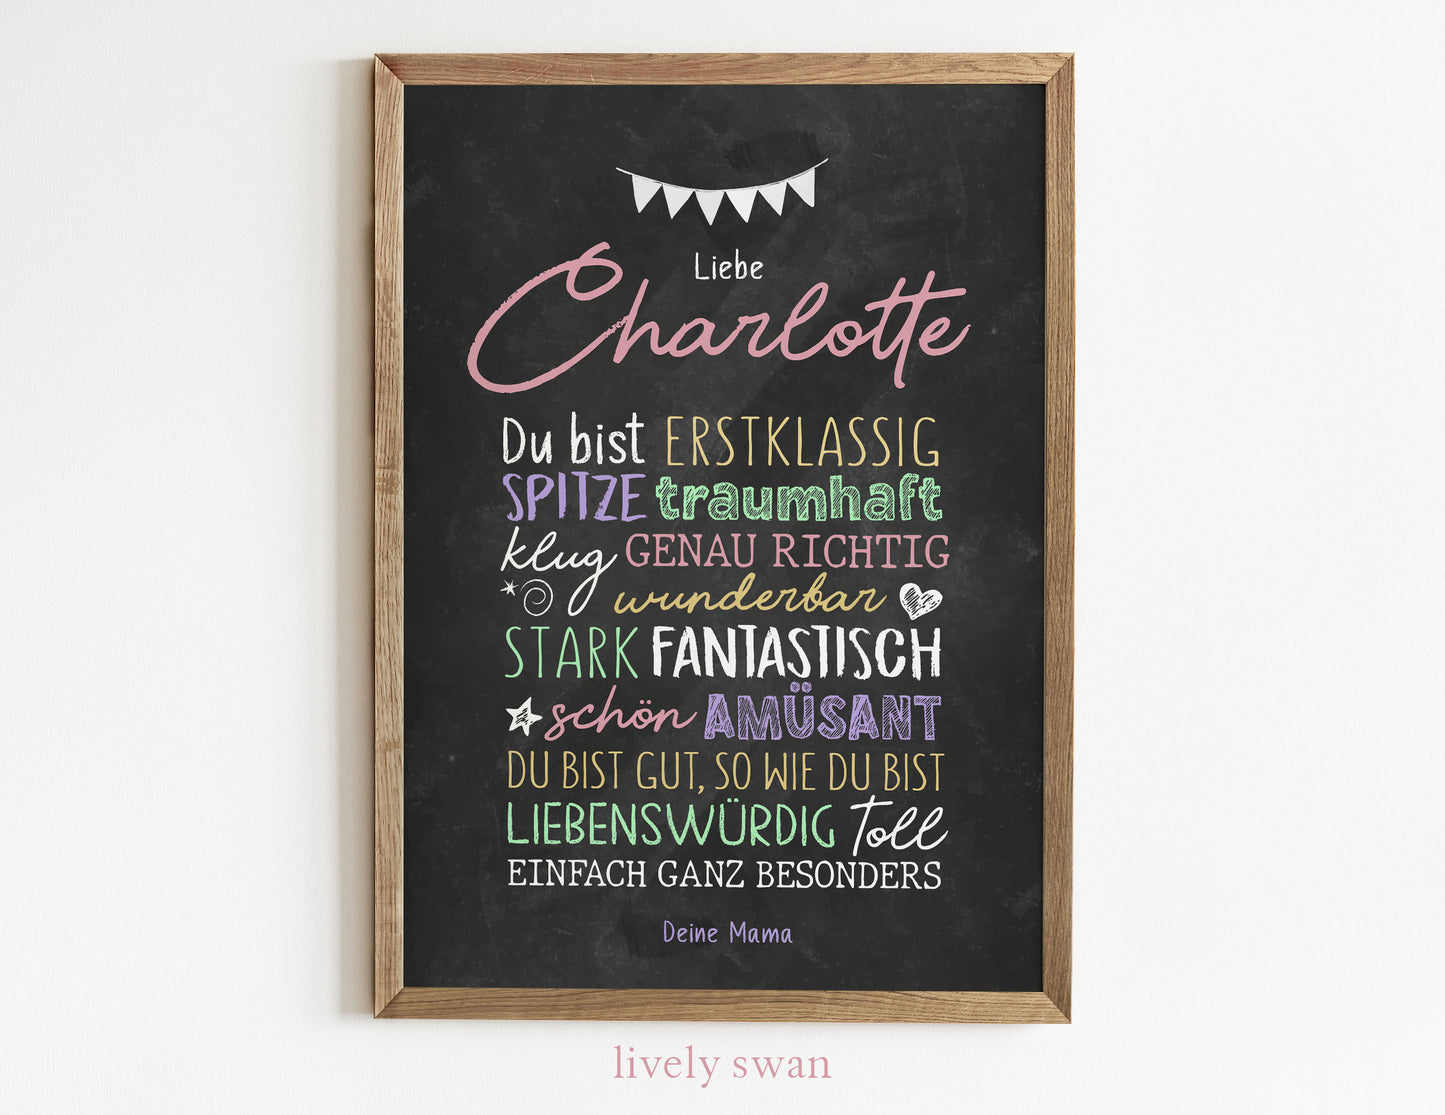 Liebe
Charlotte
Du bist ERSTKLASSIG
SPITZE traumhaft
klug GENAU RICHTIG
wunderbar
STARK FANTASTISCH
schön AMÜSANT
DU BIST GUT, SO WIE DU BIST
LIEBENSWÜRDIG Toll
EINFACH GANZ BESONDERS
Deine Mama
lively swan